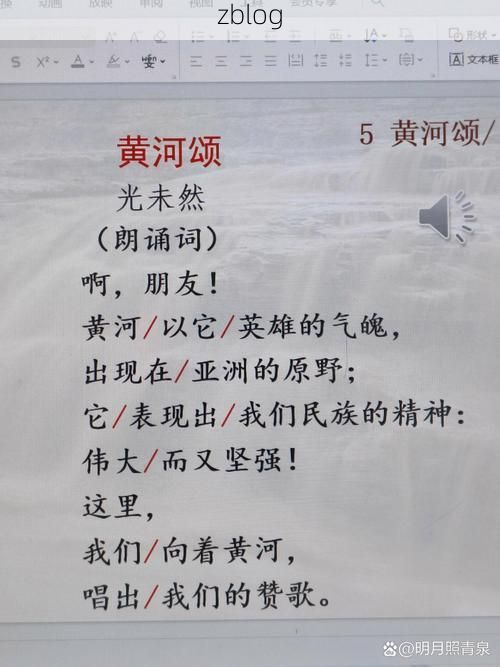 zblog
换 动画 放映 审阅 视图 工具 会员专享
S X² A 变
形状
文本框
黄河颂
5 黄河颂/
光未然
（朗诵词）
啊，朋友！
黄河/以它/英雄的气魄，
出现在/亚洲的原野；
它/表现出/我们民族的精神：
伟大/而又坚强！
这里，
我们/向着黄河，
唱出/我们的赞歌。
@明月照青泉